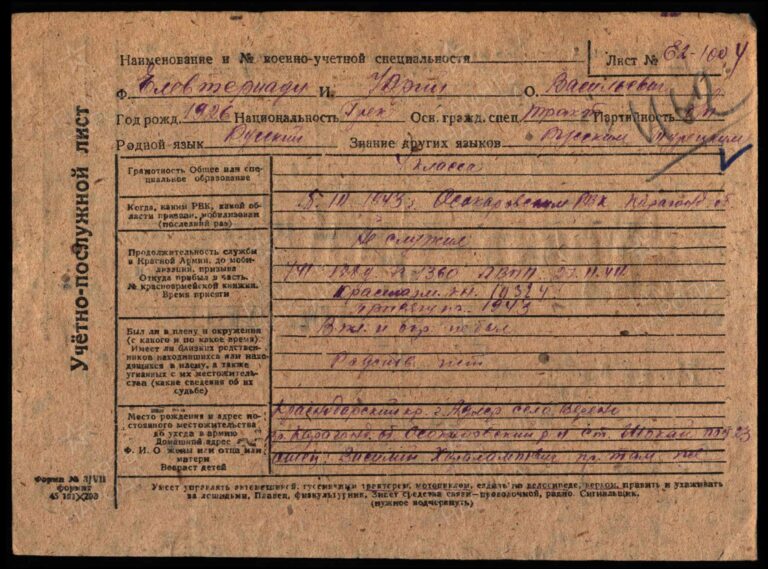 Наименование и № военно-учетной специальности
Лист № Е2-1004
Ф. Еловтериади И. Юрий О. Васильевич
Год рожд. 1926 Национальность Грек Осн. гражд. спец. Партийность бп
Родной язык Русский Знание других языков Русским турецким
Учётно-послужной лист
Грамотность Общее или спе-
циальное образование
класса
Когда, каким РВК, какой об-
ласти призван, мобилизован
(последний раз)
1943 г. Осакаровским РВК Караганд об
Продолжительность службы
в Красной Армии, до моби-
лизации, призыва
Откуда прибыл в часть.
№ красноармейской книжки.
Время присяги
Не служил
Красноарм. кн.
1943
Был ли в плену и окружении
(с какого и по какое время)
Имеет ли близких родствен-
ников находившихся или нахо-
дящихся в плену, а также
угнанных с их местожитель-
ства (какие сведения об их
судьбе)
В пл. и окр. не был
Родств. нет
Место рождения и адрес по-
стоянного местожительства
до ухода в армию
Домашний адрес
Ф. И. О жены или отца или
матери
Возраст детей
Краснодарский кр. г. Адлер село
Караганд. об Осакаровский р-н ст. Шокай
отец: Василий Харлампович пр. там же
Форма № 3/VII
формат
Умеет управлять автомашиной, гусеничным трактором, мотоциклом, ездить на велосипеде, верхом, править и ухаживать
за лошадьми, Пловец, физкультурник, Знает средства связи—проволочной, радио. Сигнальщик.
(нужное подчеркнуть)